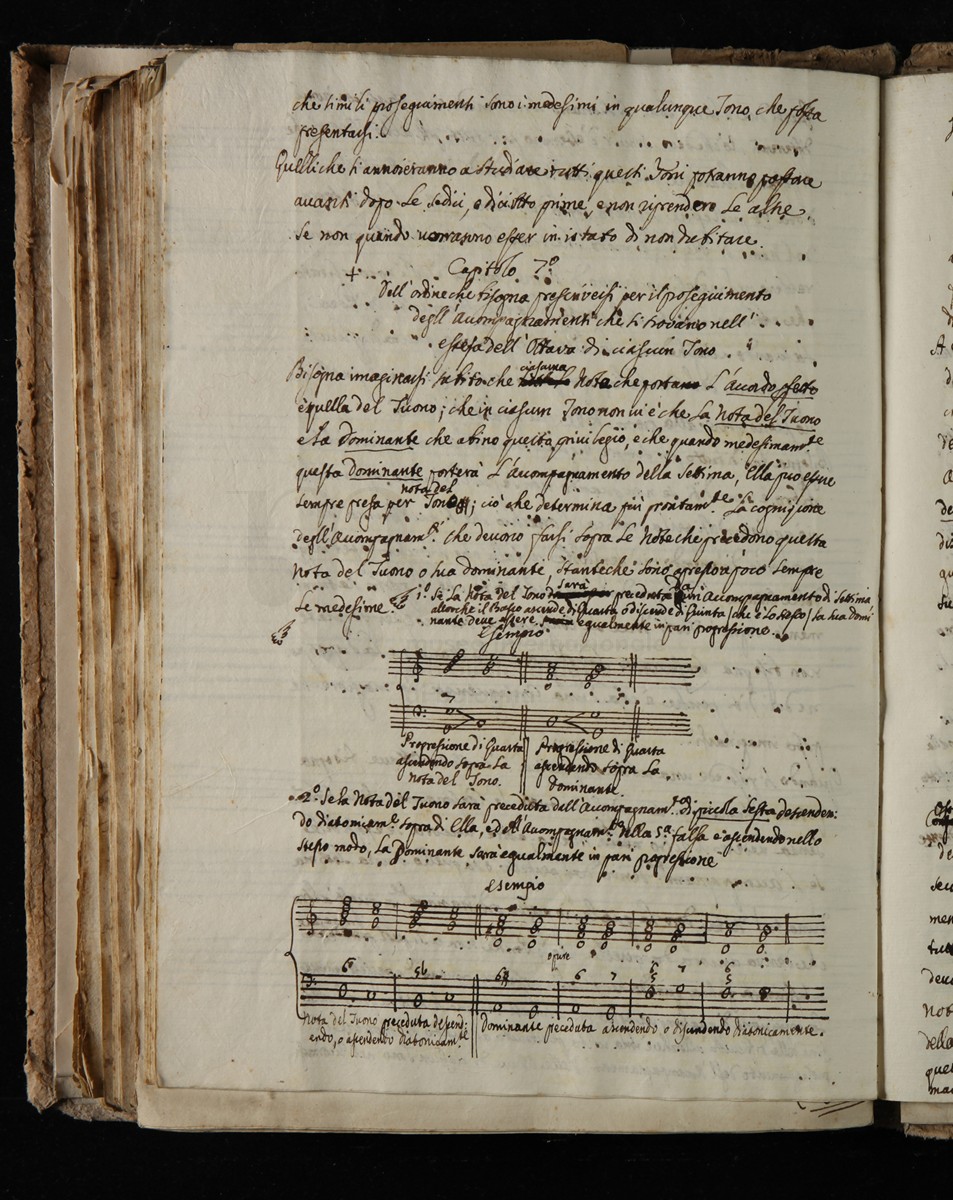 che simili proseguimenti sono i medesimi in qualunque Tono, che possa
presentarsi.
Quelli che si annoieranno a studiare tutti questi Toni potranno passare
avanti dopo le sedici, o diciotto prime, e non riprendere le altre
se non quando vorranno esser in istato di non dubitare.
Capitolo 7.º
+ Dell'ordine che bisogna prescriversi per il proseguimento
degl'Acompagnamenti che si trovano nell'
estesa dell'Ottava di ciascun Tono.
ciascuna
Bisogna imaginarsi subito che Nota che porta L'acordo perfetto
è quella del Tuono; che in ciascun Tono non vi è che la Nota del Tuono
e la Dominante che abino questa privilegio, e che quando medesimam.te
questa Dominante porterà L'acompagnamento della Settima, Ella può essere
nota del
sempre presa per Tono; ciò che determina più prontam.te La cognizione
degl'Acompagnam.ti che devono farsi sopra le Note che precedono questa
Nota del Tuono o sua dominante, stanteche sono apresso a poco sempre
le medesime.
sarà
1.º Se la Nota del Tono preceduta da un Acompagnamento di Settima
allorche il Basso ascende di Quarta o discende di Quinta /che è lo stesso/ la sua Domi
nante deve essere egualmente in pari progressione.
Esempio
7
7
Progressione di Quarta
ascendendo sopra la
nota del Tono.
Progressione di Quarta
ascendendo sopra la
Dominante.
2.º Se la Nota del Tuono sarà preceduta dall'Acompagnam.to di piccola Sesta descenden:
do diatonicam.te sopra di Ella, e dall'Acompagnam.to della 5.a falsa ascendendo nello
stesso modo, la Dominante sarà egualmente in pari progressione
Esempio
opure
6 56 6 6 7 6 5 7 6 5
Nota del Tuono preceduta descend:
endo, o ascendendo diatonicam.te
Dominante preceduta ascendendo o discendendo diatonicamente.